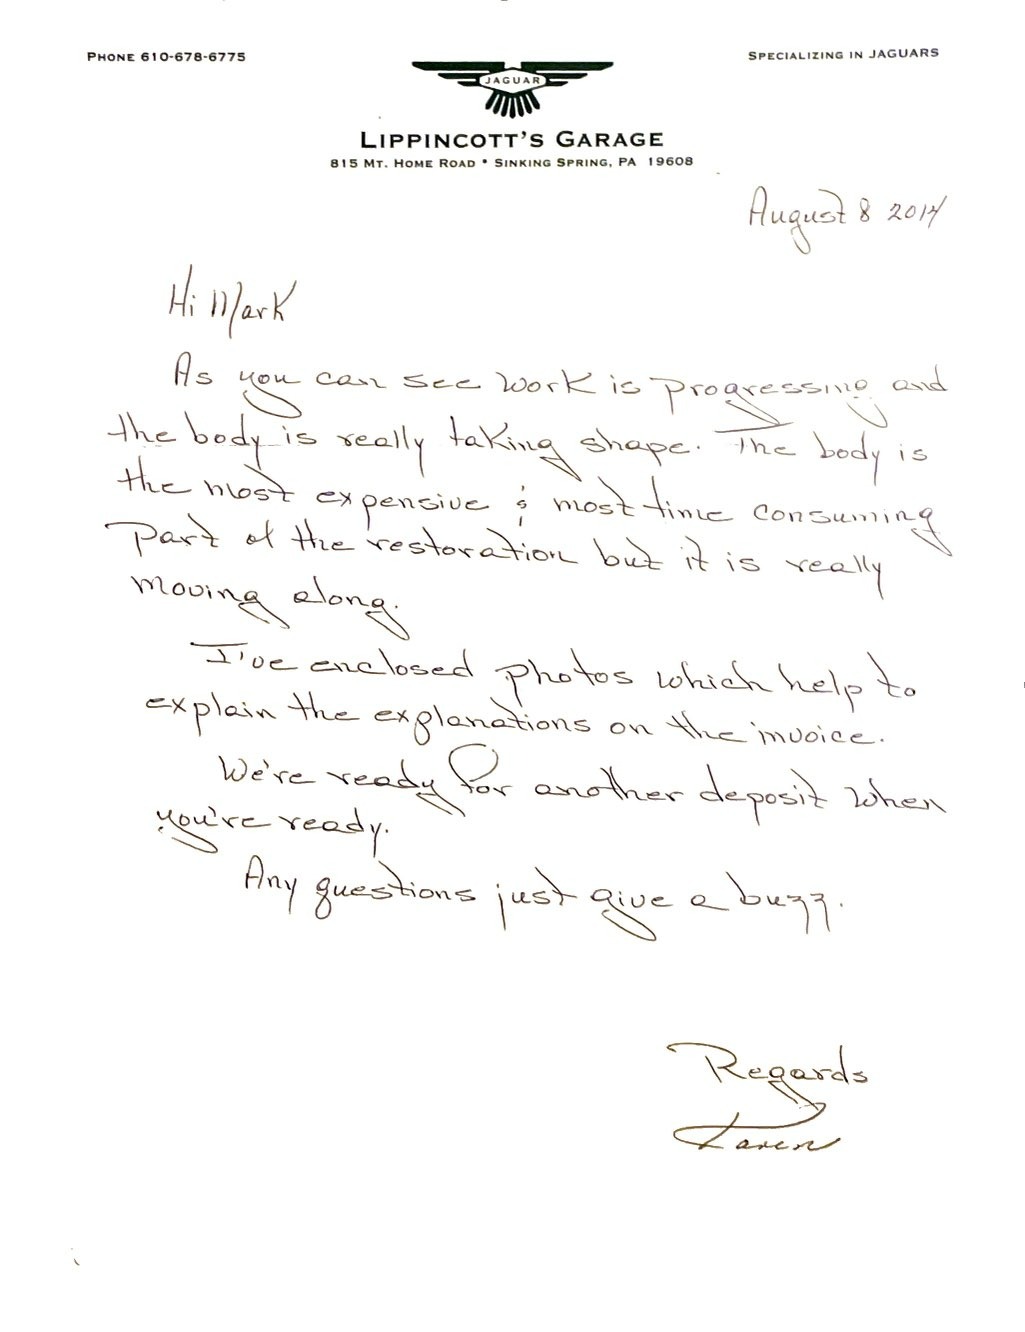 PHONE 610-678-6775
SPECIALIZING IN JAGUARS
JAGUAR
LIPPINCOTT'S GARAGE
815 MT. HOME ROAD • SINKING SPRING, PA 19608
August 8 2014
Hi Mark
As you can see work is progressing and
the body is really taking shape. The body is
the most expensive & most time consuming
part of the restoration but it is really
moving along.
I've enclosed photos which help to
explain the explanations on the invoice.
We're ready for another deposit when
you're ready.
Any questions just give a buzz.
Regards
Karen